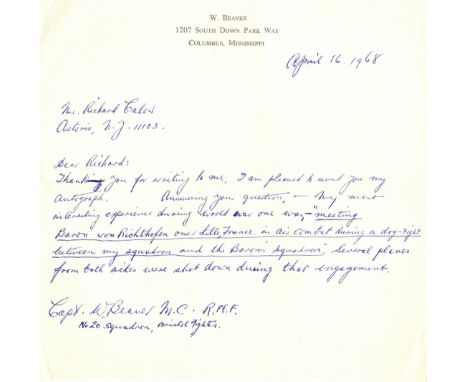 W. Beaver
1207 South Down Park Way
Columbus, Mississippi
April 16 1968
Mr. Richard Calow
Astoria, N.J. 11103.
Dear Richard:
Thank you for writing to me, I am pleased to send you my
autograph. Answering your question, - My most
interesting experience during world war one was, "meeting
Baron von Richthofen over Lille, France, in air combat during a dog-fight
between my squadron and the Baron's squadron", Several planes
from both sides were shot down during that engagement.
Capt W. Beaver M.C. R.A.F.
No 20 Squadron, Bristol Fighters.